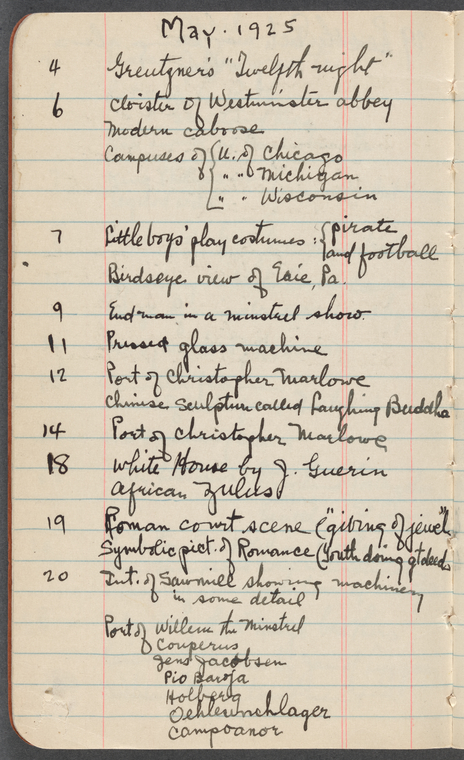 May. 1925
4 Greutzner's "Twelfth night"
6 cloister of Westminster abbey
Modern caboose
Campuses of { U. of Chicago
" " Michigan
" " Wisconsin
7 Little boys' play costumes : { pirate
and football
Birdseye view of Erie, Pa.
9 End-man in a minstrel show.
11 Pressed glass machine
12 Port of Christopher Marlowe
Chinese Sculpture called Laughing Buddha
14 Port of Christopher Marlowe
18 White House by J. Guerin
African Zulus
19 Roman court scene ("giving of jewel")
Symbolic pict. of Romance (Youth doing gt deeds
20 Int. of Sawmill showing machinery
in some detail
Port of Willem the Minstrel
Couperus
Jens Jacobsen
Pio Baroja
Holberg
Oehlenschlager
Campoanor